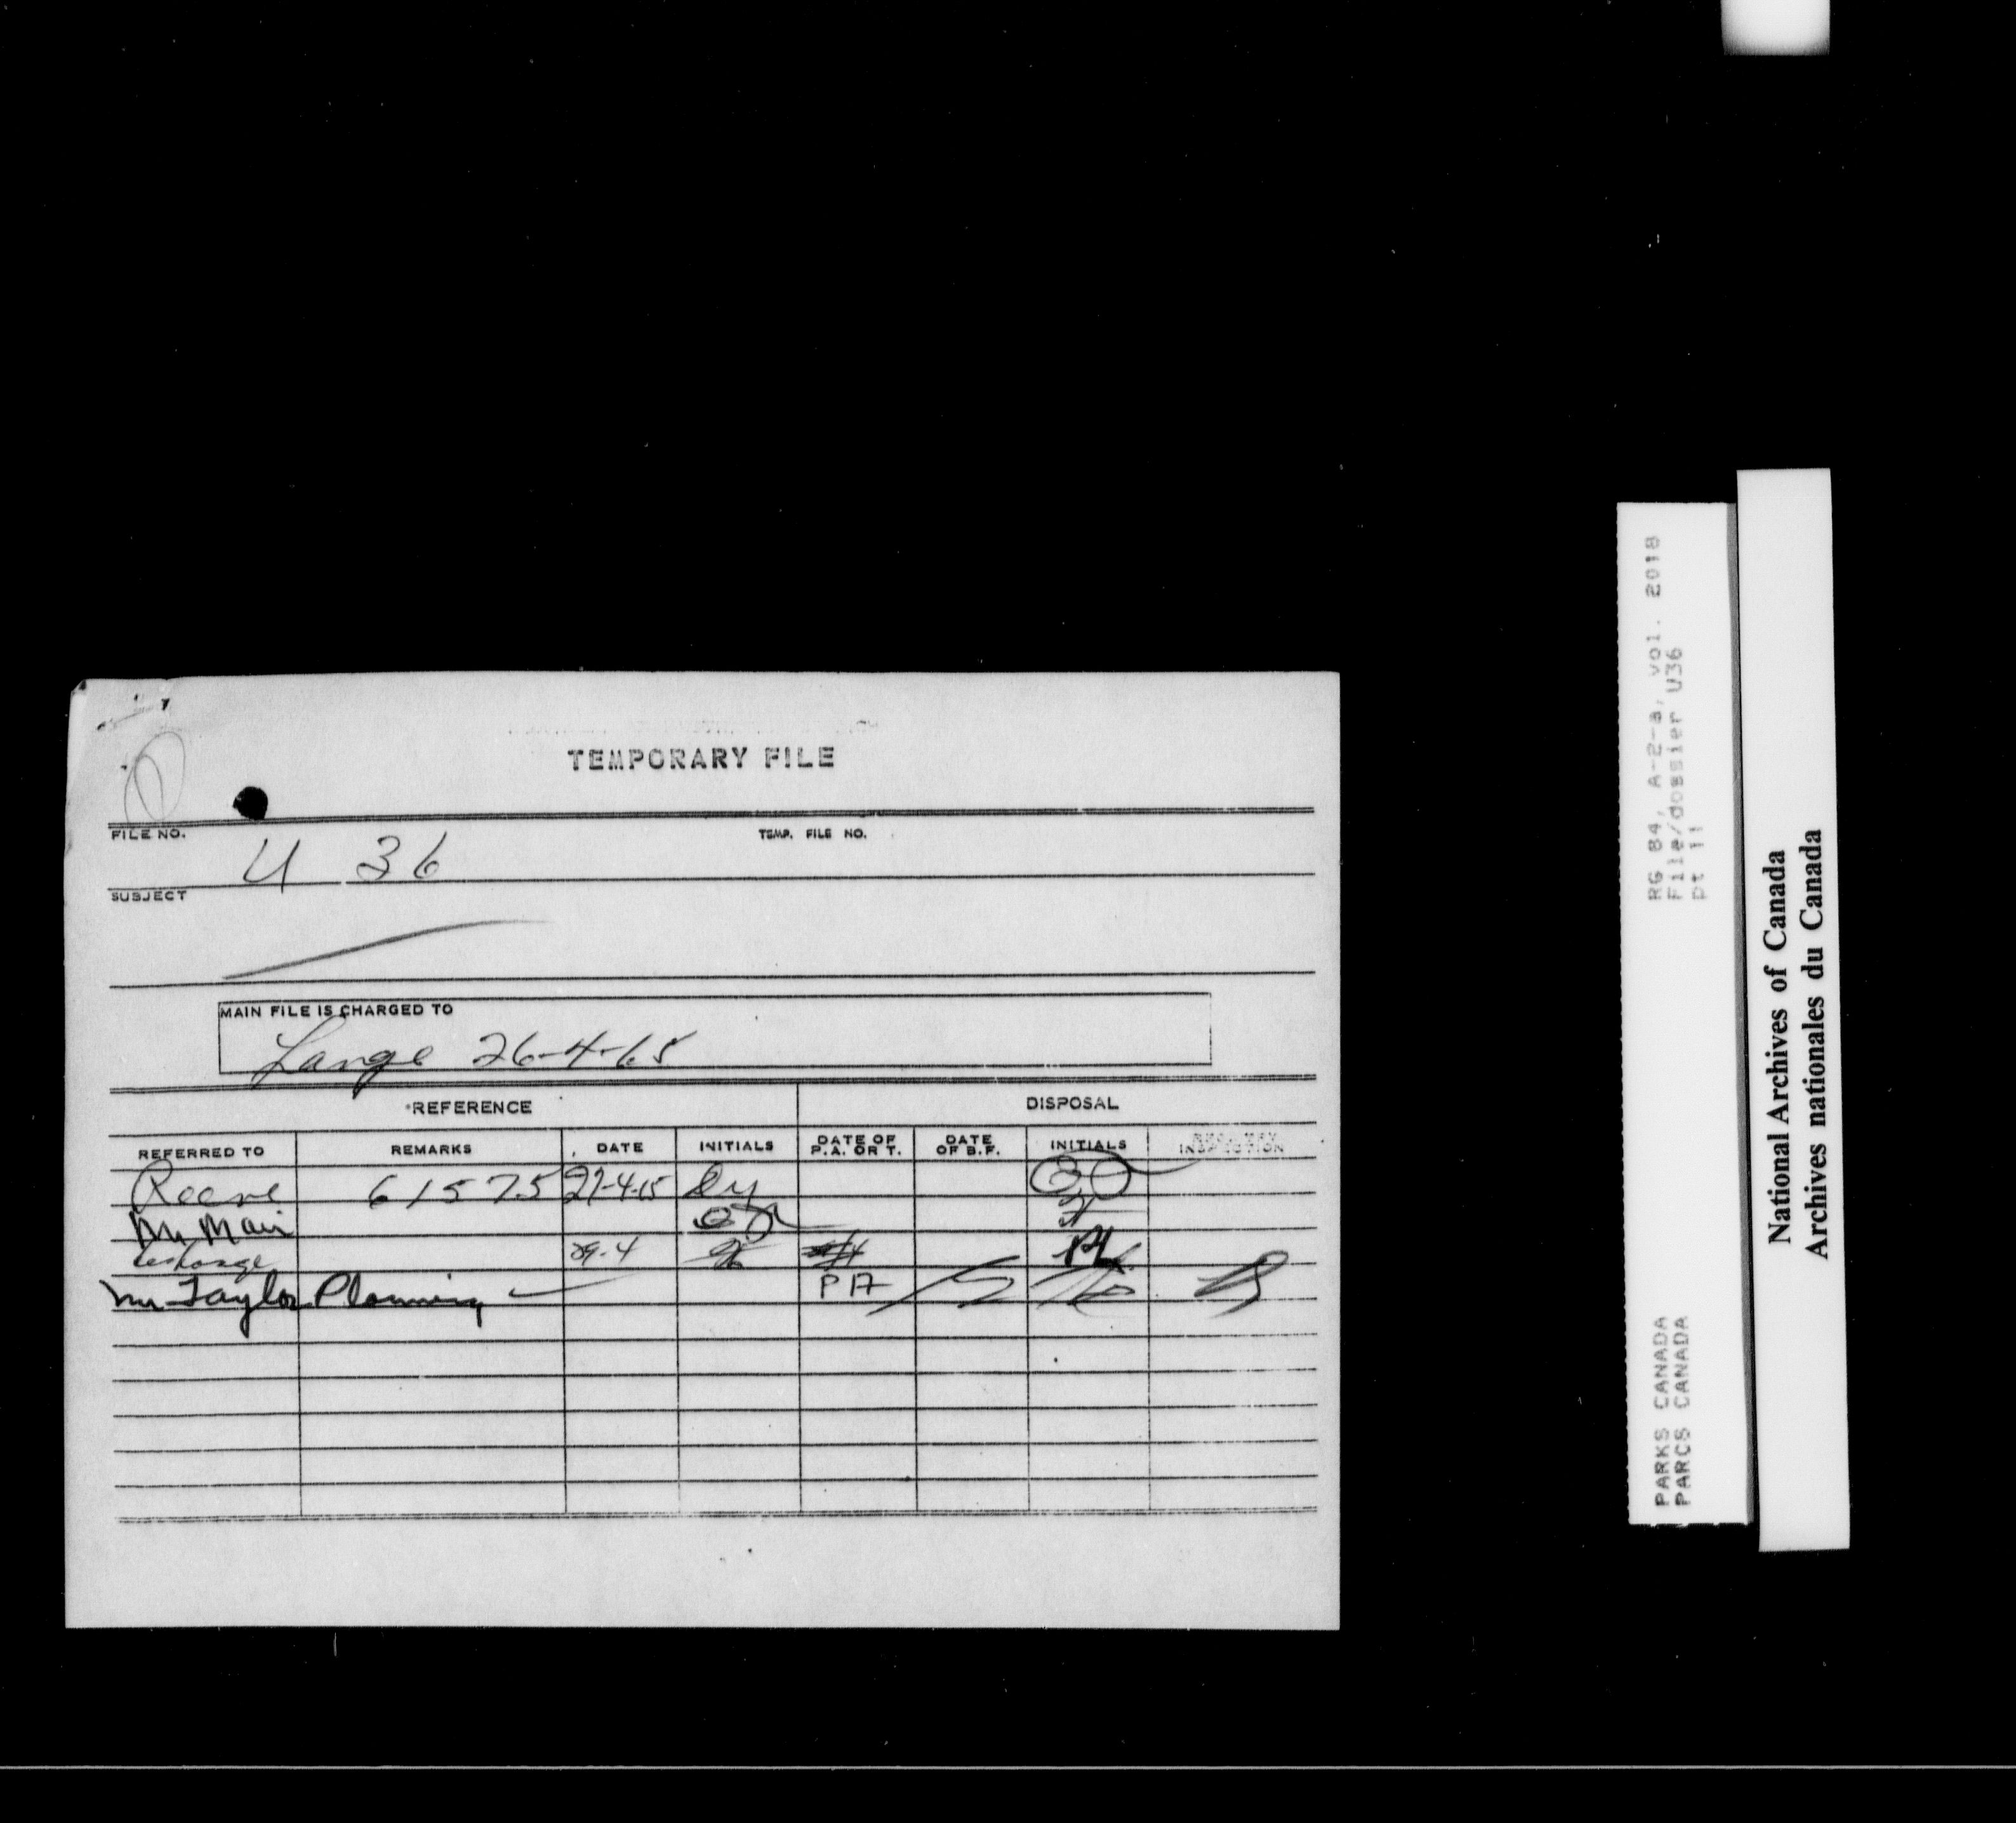 TEMPORARY FILE
FILE NO. U 36 TEMP. FILE NO.
SUBJECT
MAIN FILE IS CHARGED TO
Lange 26-4-65
REFERENCE DISPOSAL
REFERRED TO REMARKS DATE INITIALS DATE OF P.A. OR T. DATE OF B.F. INITIALS INSPECTION
Reeve 61575 27-4-65
Mr Mair
29-4
Mr Taylor Planning PA
RG 84, A-2-a, vol. 2018
File/dossier U36
pt 11
PARKS CANADA
PARCS CANADA
National Archives of Canada
Archives nationales du Canada